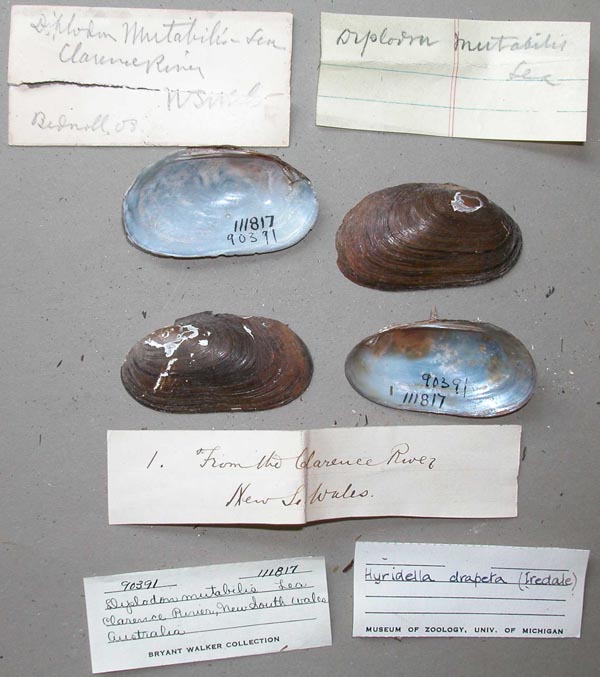 Diplodon Mutabilis - Lea
Clarence River
N S Wales
Diplodon Mutabilis
Lea
111817
90391
90391
1 111817
1. From the Clarence River
New So Wales.
90391 111817
Diplodon mutabilis Lea
Clarence River, New South Wales
Australia
BRYANT WALKER COLLECTION
Hyridella drapeta (Iredale)
MUSEUM OF ZOOLOGY, UNIV. OF MICHIGAN